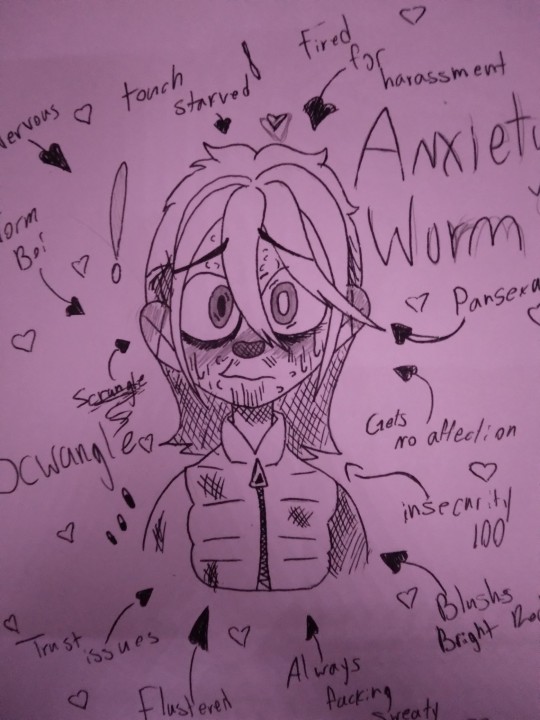 Fired
for
harassment
touch
starved
Nervous
Anxiety
Worm
Worm
Boi
Pansexua
Scrangle
Gets
no affection
insecurity
100
Blushs
Bright
Trust
issues
Flustered
Always
fucking
Sweaty